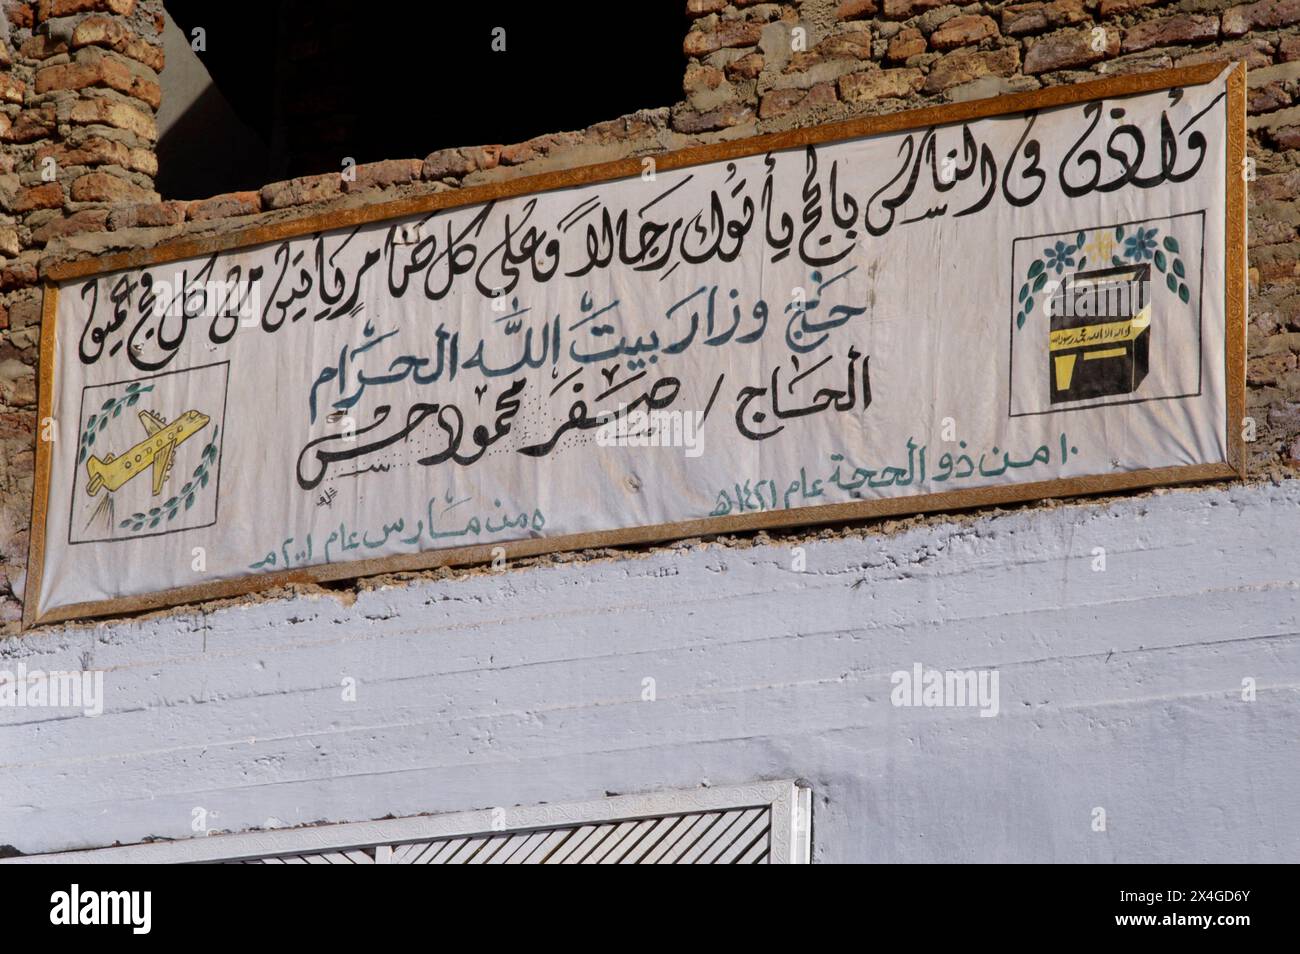 وأذن فى الناس بالحج يأتوك رجالاً وعلى كل ضامر يأتين من كل فج عميق
حج وزار بيت الله الحرام
الحاج / صفر محمود حسن
١٠ من ذو الحجة عام ١٤٢١ هـ
٥ من مارس عام ٢٠٠١ م
لا اله الا الله محمد رسول الله
alamy
alamy
Image ID: 2X4GD6Y
www.alamy.com